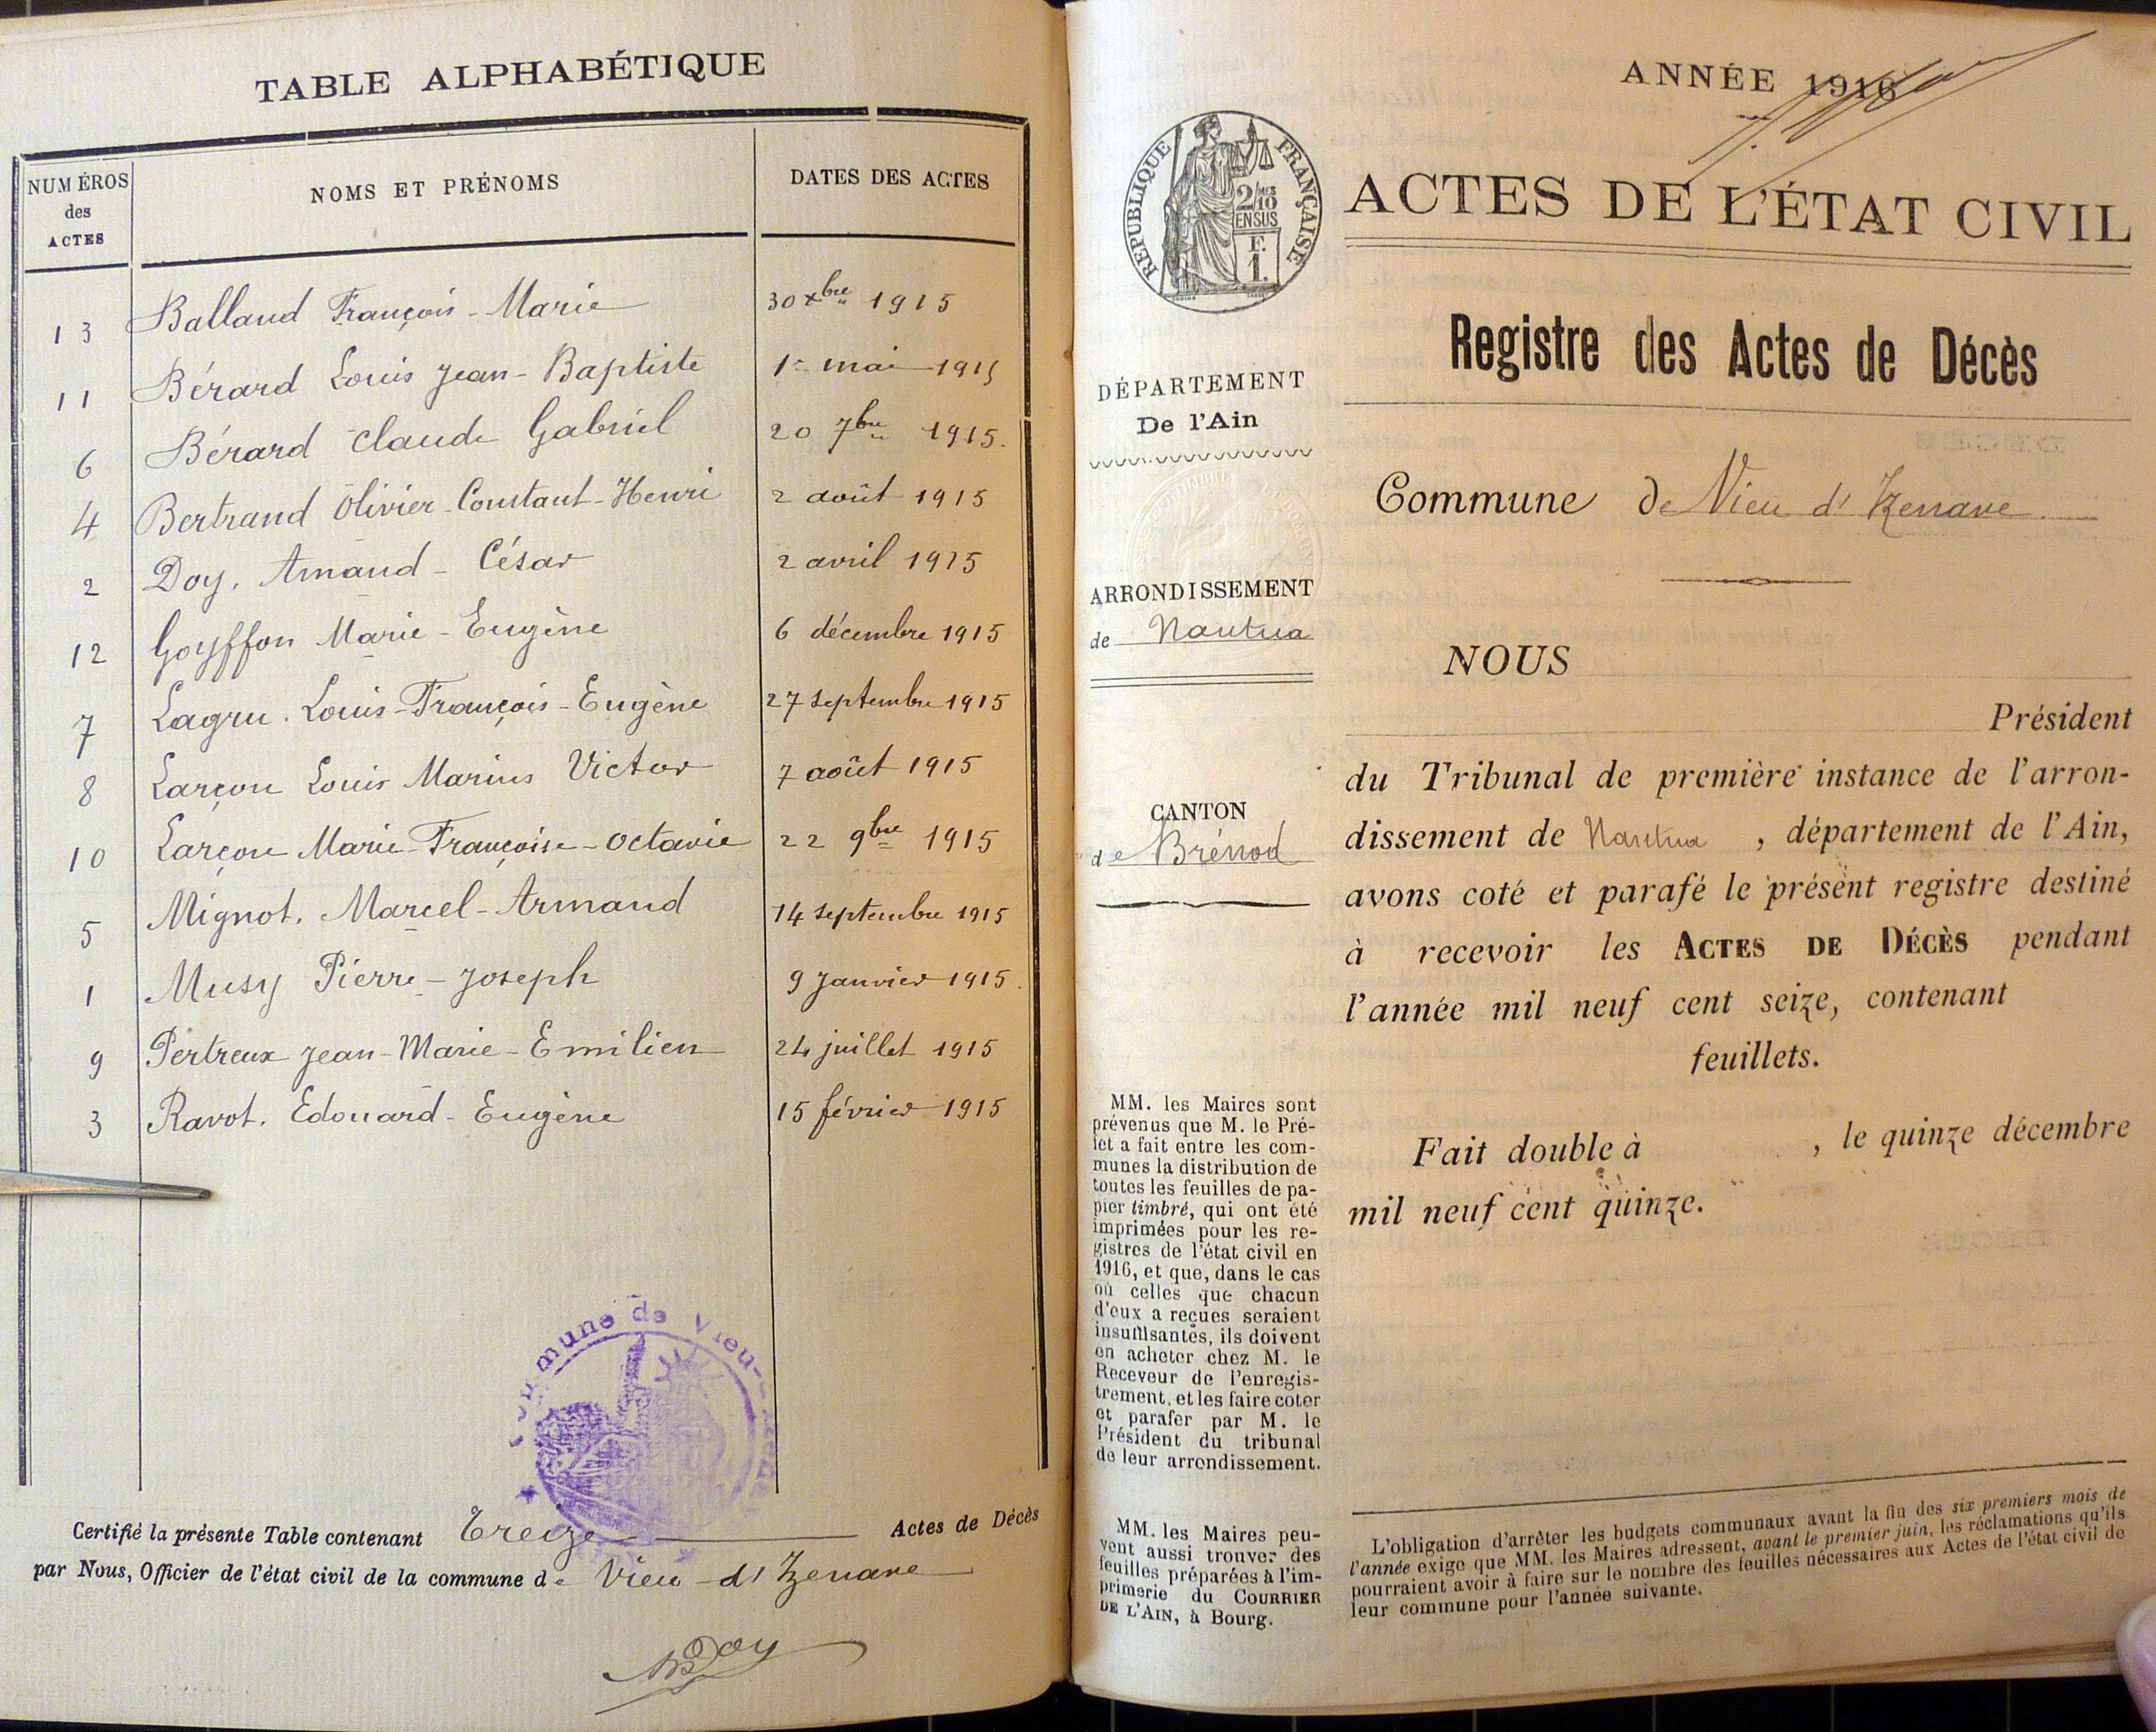 TABLE ALPHABÉTIQUE
NUMÉROS
des
ACTES
NOMS ET PRÉNOMS
DATES DES ACTES
13 Balland François-Marie 30 xbre 1915
11 Bérard Louis Jean-Baptiste 1r mai 1915
6 Bérard Claude Gabriel 20 7bre 1915.
4 Bertrand Olivier-Constant-Henri 2 août 1915
2 Doy. Armand-César 2 avril 1915
12 Goyffon Marie-Eugène 6 décembre 1915
7 Lagru. Louis-François-Eugène 27 septembre 1915
8 Larçon Louis Marius Victor 7 août 1915
10 Larçon Marie-Françoise-Octavie 22 9bre 1915
5 Mignot. Marcel-Armand 14 septembre 1915
1 Musy Pierre-Joseph 9 Janvier 1915.
9 Pertreux Jean-Marie-Emilien 24 juillet 1915
3 Ravot. Edouard-Eugène 15 février 1915
Commune de Vieu-
Certifié la présente Table contenant Treize Actes de Décès
par Nous, Officier de l'état civil de la commune de Vieu-d'Izenave
Doy
ANNÉE 1916
RÉPUBLIQUE FRANÇAISE
2/10
MES
EN SUS
F.
1.
ACTES DE L'ÉTAT CIVIL
Registre des Actes de Décès
DÉPARTEMENT
De l'Ain
Commune de Vieu d'Izenave
ARRONDISSEMENT
de Nantua
CANTON
de Brénod
NOUS
Président
du Tribunal de première instance de l'arron-
dissement de Nantua, département de l'Ain,
avons coté et parafé le présent registre destiné
à recevoir les ACTES DE DÉCÈS pendant
l'année mil neuf cent seize, contenant
feuillets.
Fait double à , le quinze décembre
mil neuf cent quinze.
MM. les Maires sont
prévenus que M. le Pré-
fet a fait entre les com-
munes la distribution de
toutes les feuilles de pa-
pier timbré, qui ont été
imprimées pour les re-
gistres de l'état civil en
1916, et que, dans le cas
où celles que chacun
d'eux a reçues seraient
insuffisantes, ils doivent
en acheter chez M. le
Receveur de l'enregis-
trement, et les faire coter
et parafer par M. le
Président du tribunal
de leur arrondissement.
MM. les Maires peu-
vent aussi trouver des
feuilles préparées à l'im-
primerie du COURRIER
DE L'AIN, à Bourg.
L'obligation d'arrêter les budgets communaux avant la fin des six premiers mois de
l'année exige que MM. les Maires adressent, avant le premier juin, les réclamations qu'ils
pourraient avoir à faire sur le nombre des feuilles nécessaires aux Actes de l'état civil de
leur commune pour l'année suivante.